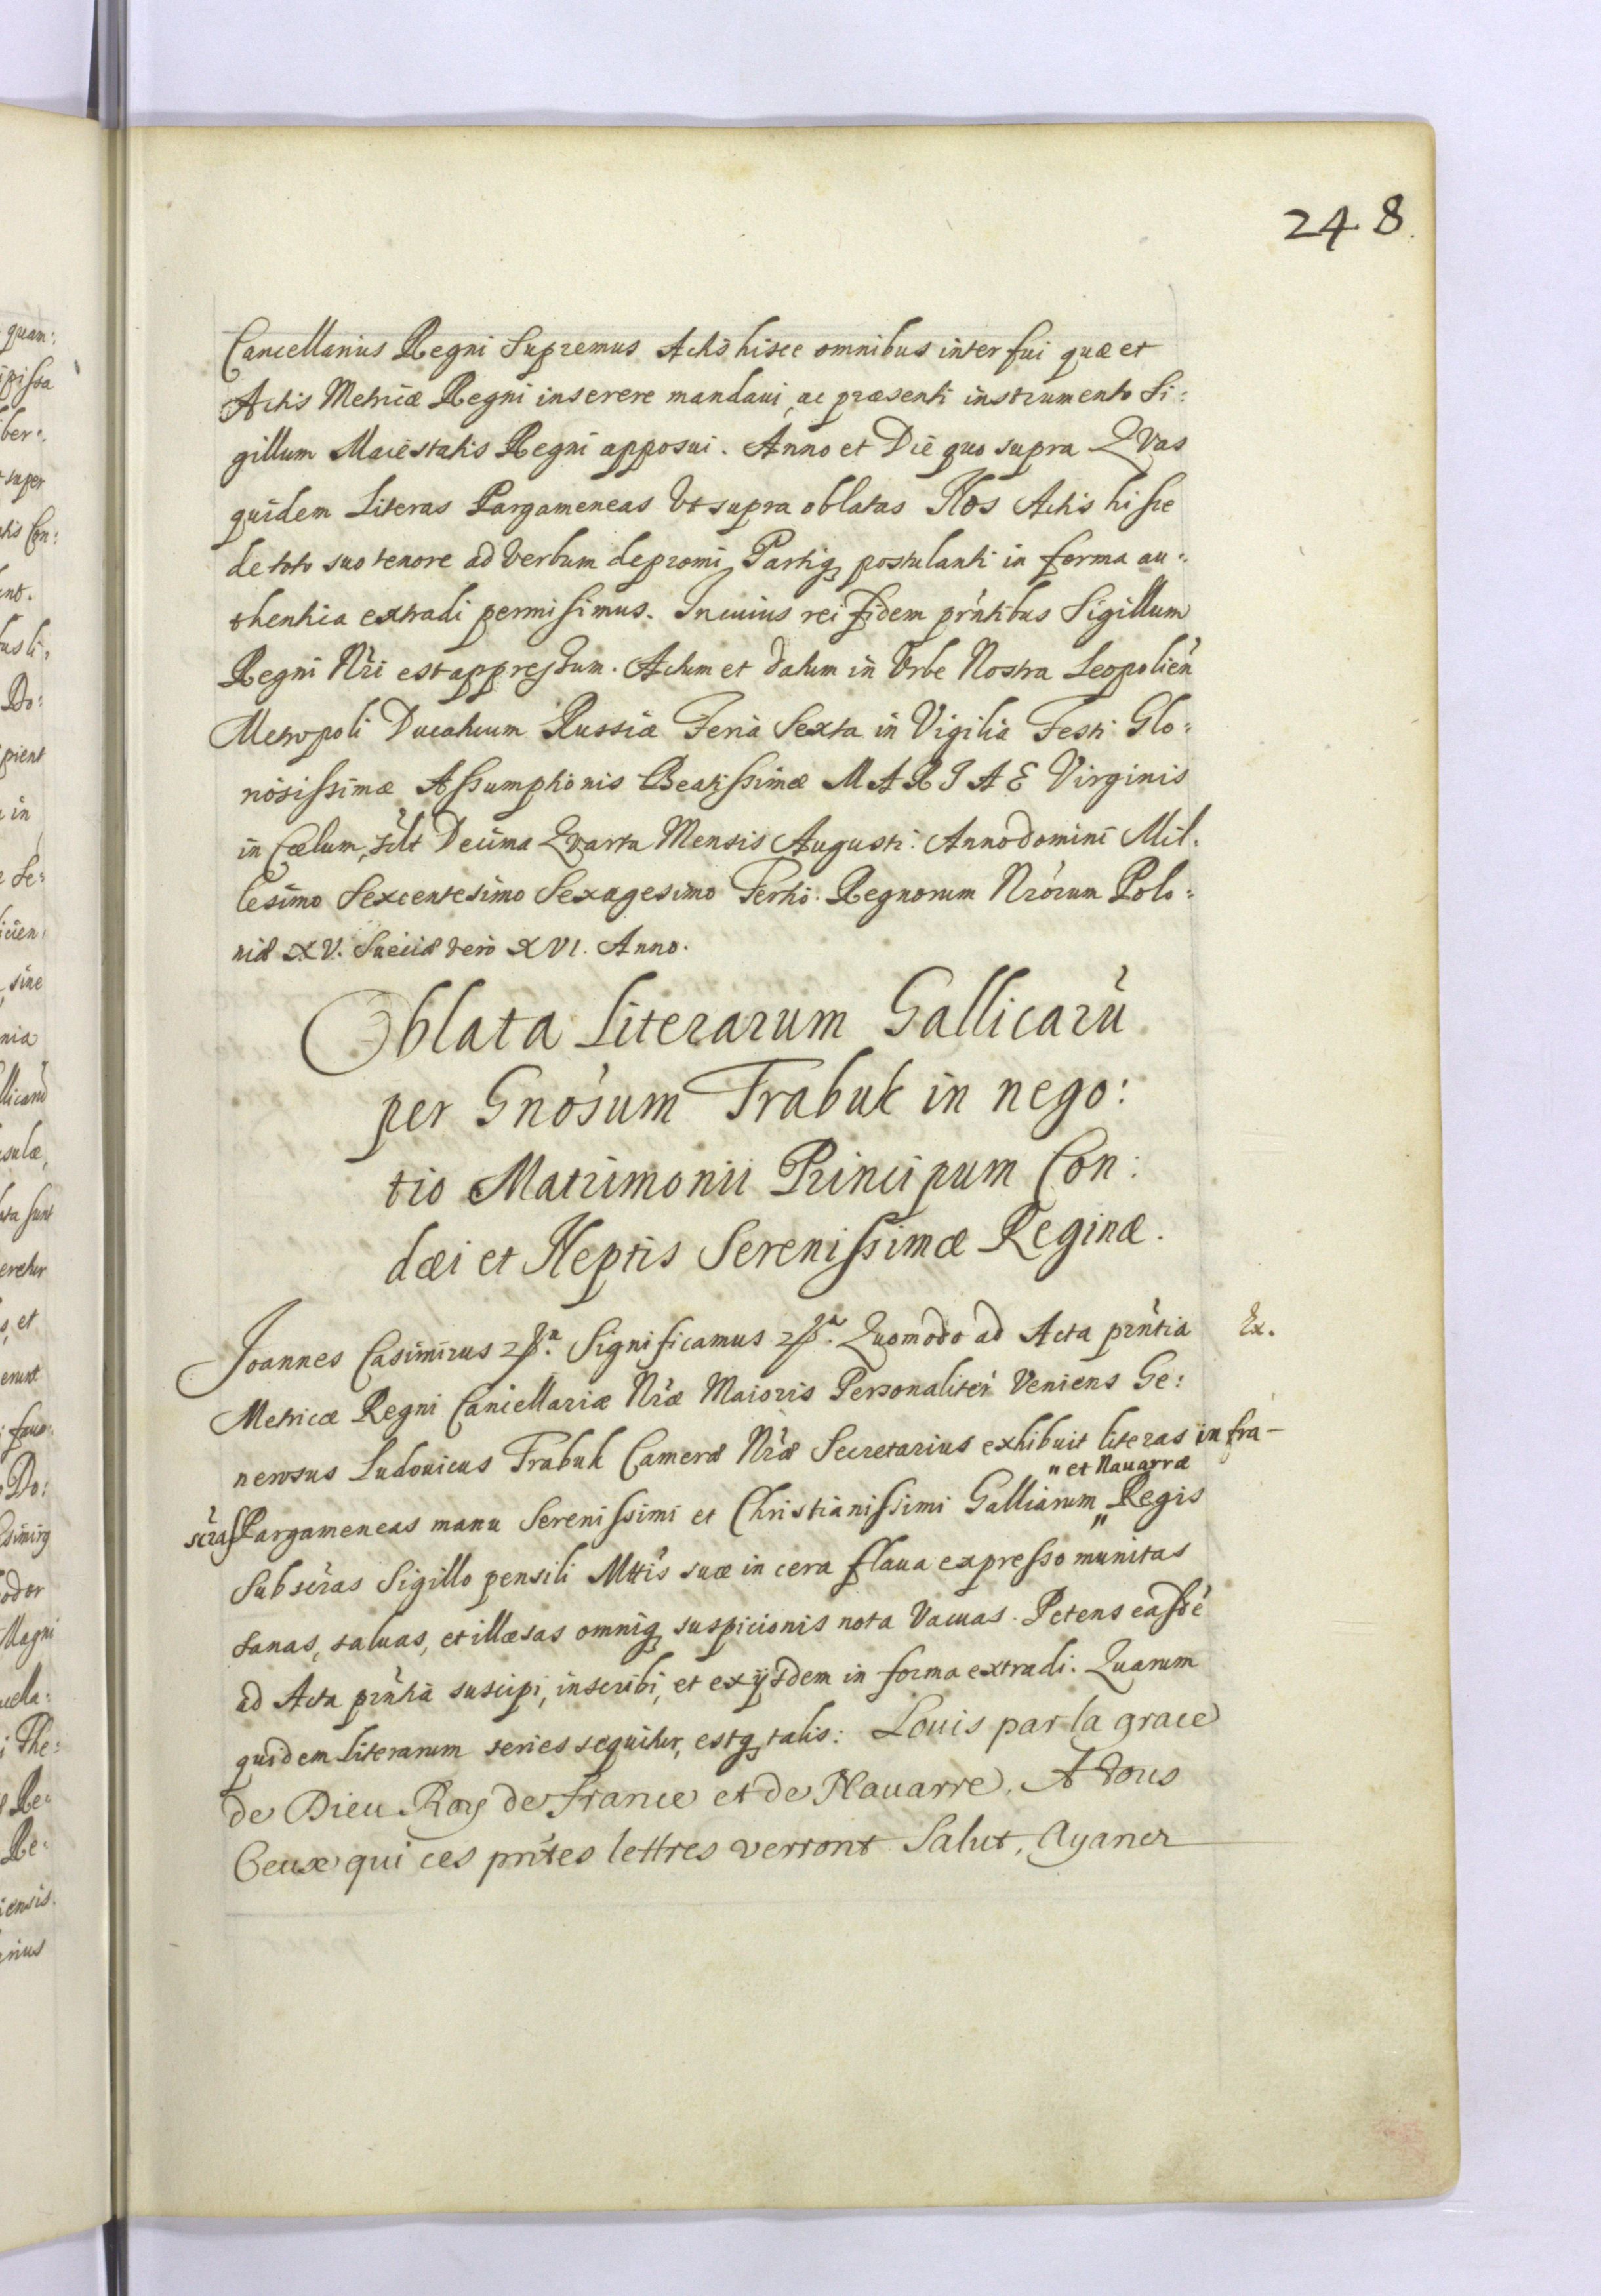 248.
Cancellarius Regni Supremus Actis hisce omnibus interfui quæ et
Actis Metricæ Regni inserere mandaui, ac præsenti instrumento Si:
gillum Maiestatis Regni apposui. Anno et Die quo supra Qvas
quidem Literas Pargameneas Vt supra oblatas Nos Actis hisce
de toto suo tenore ad Verbum depromi Partiq postulanti in forma au:
thentica extradi permisimus. In cuius rei fidem prńtibus Sigillum
Regni Nri est appressum. Actum et datum in Vrbe Nostra Leopolień
Metropoli Ducatuum Russiæ Feria Sexta in Vigilia Festi Glo:
riosissimæ Assumptionis Beatissimæ MARIAE Virginis
in Cœlum, sclt Decima Qvarta Mensis Augusti. Anno domini Mil:
lesimo Sexcentesimo Sexagesimo Tertio. Regnorum Nrorum Polo:
niæ XV. Sueciæ vero XVI. Anno.
Oblata Literarum Gallicarū
per Gnosum Trabuk in nego:
tio Matrimonii Principum Con:
dæi et Neptis Serenissimæ Reginæ.
Joannes Casimirus Significamus Quomodo ad Acta prńtia Ex.
Metricæ Regni Cancellariæ Nræ Maioris Personaliter Veniens Ge:
nerosus Ludouicus Trabuk Cameræ Nræ Secretarius exhibuit literas infra-
" et Nauarræ
scras Pargameneas manu Serenissimi et Christianissimi Galliarum " Regis
Subscras Sigillo pensili Mttis suæ in cera flaua expresso munitas
sanas, saluas, et illæsas omniq suspicionis nota Vacuas. Petens easdē
ad Acta prńtia suscipi, inscribi, et ex ijsdem in forma extradi. Quarum
quidem Literarum series sequitur, estq talis: Louis par la grace
de Dieu Roy de france et de Nauarre. A tous
Ceux qui ces prńtes lettres verront Salut, Ayaner